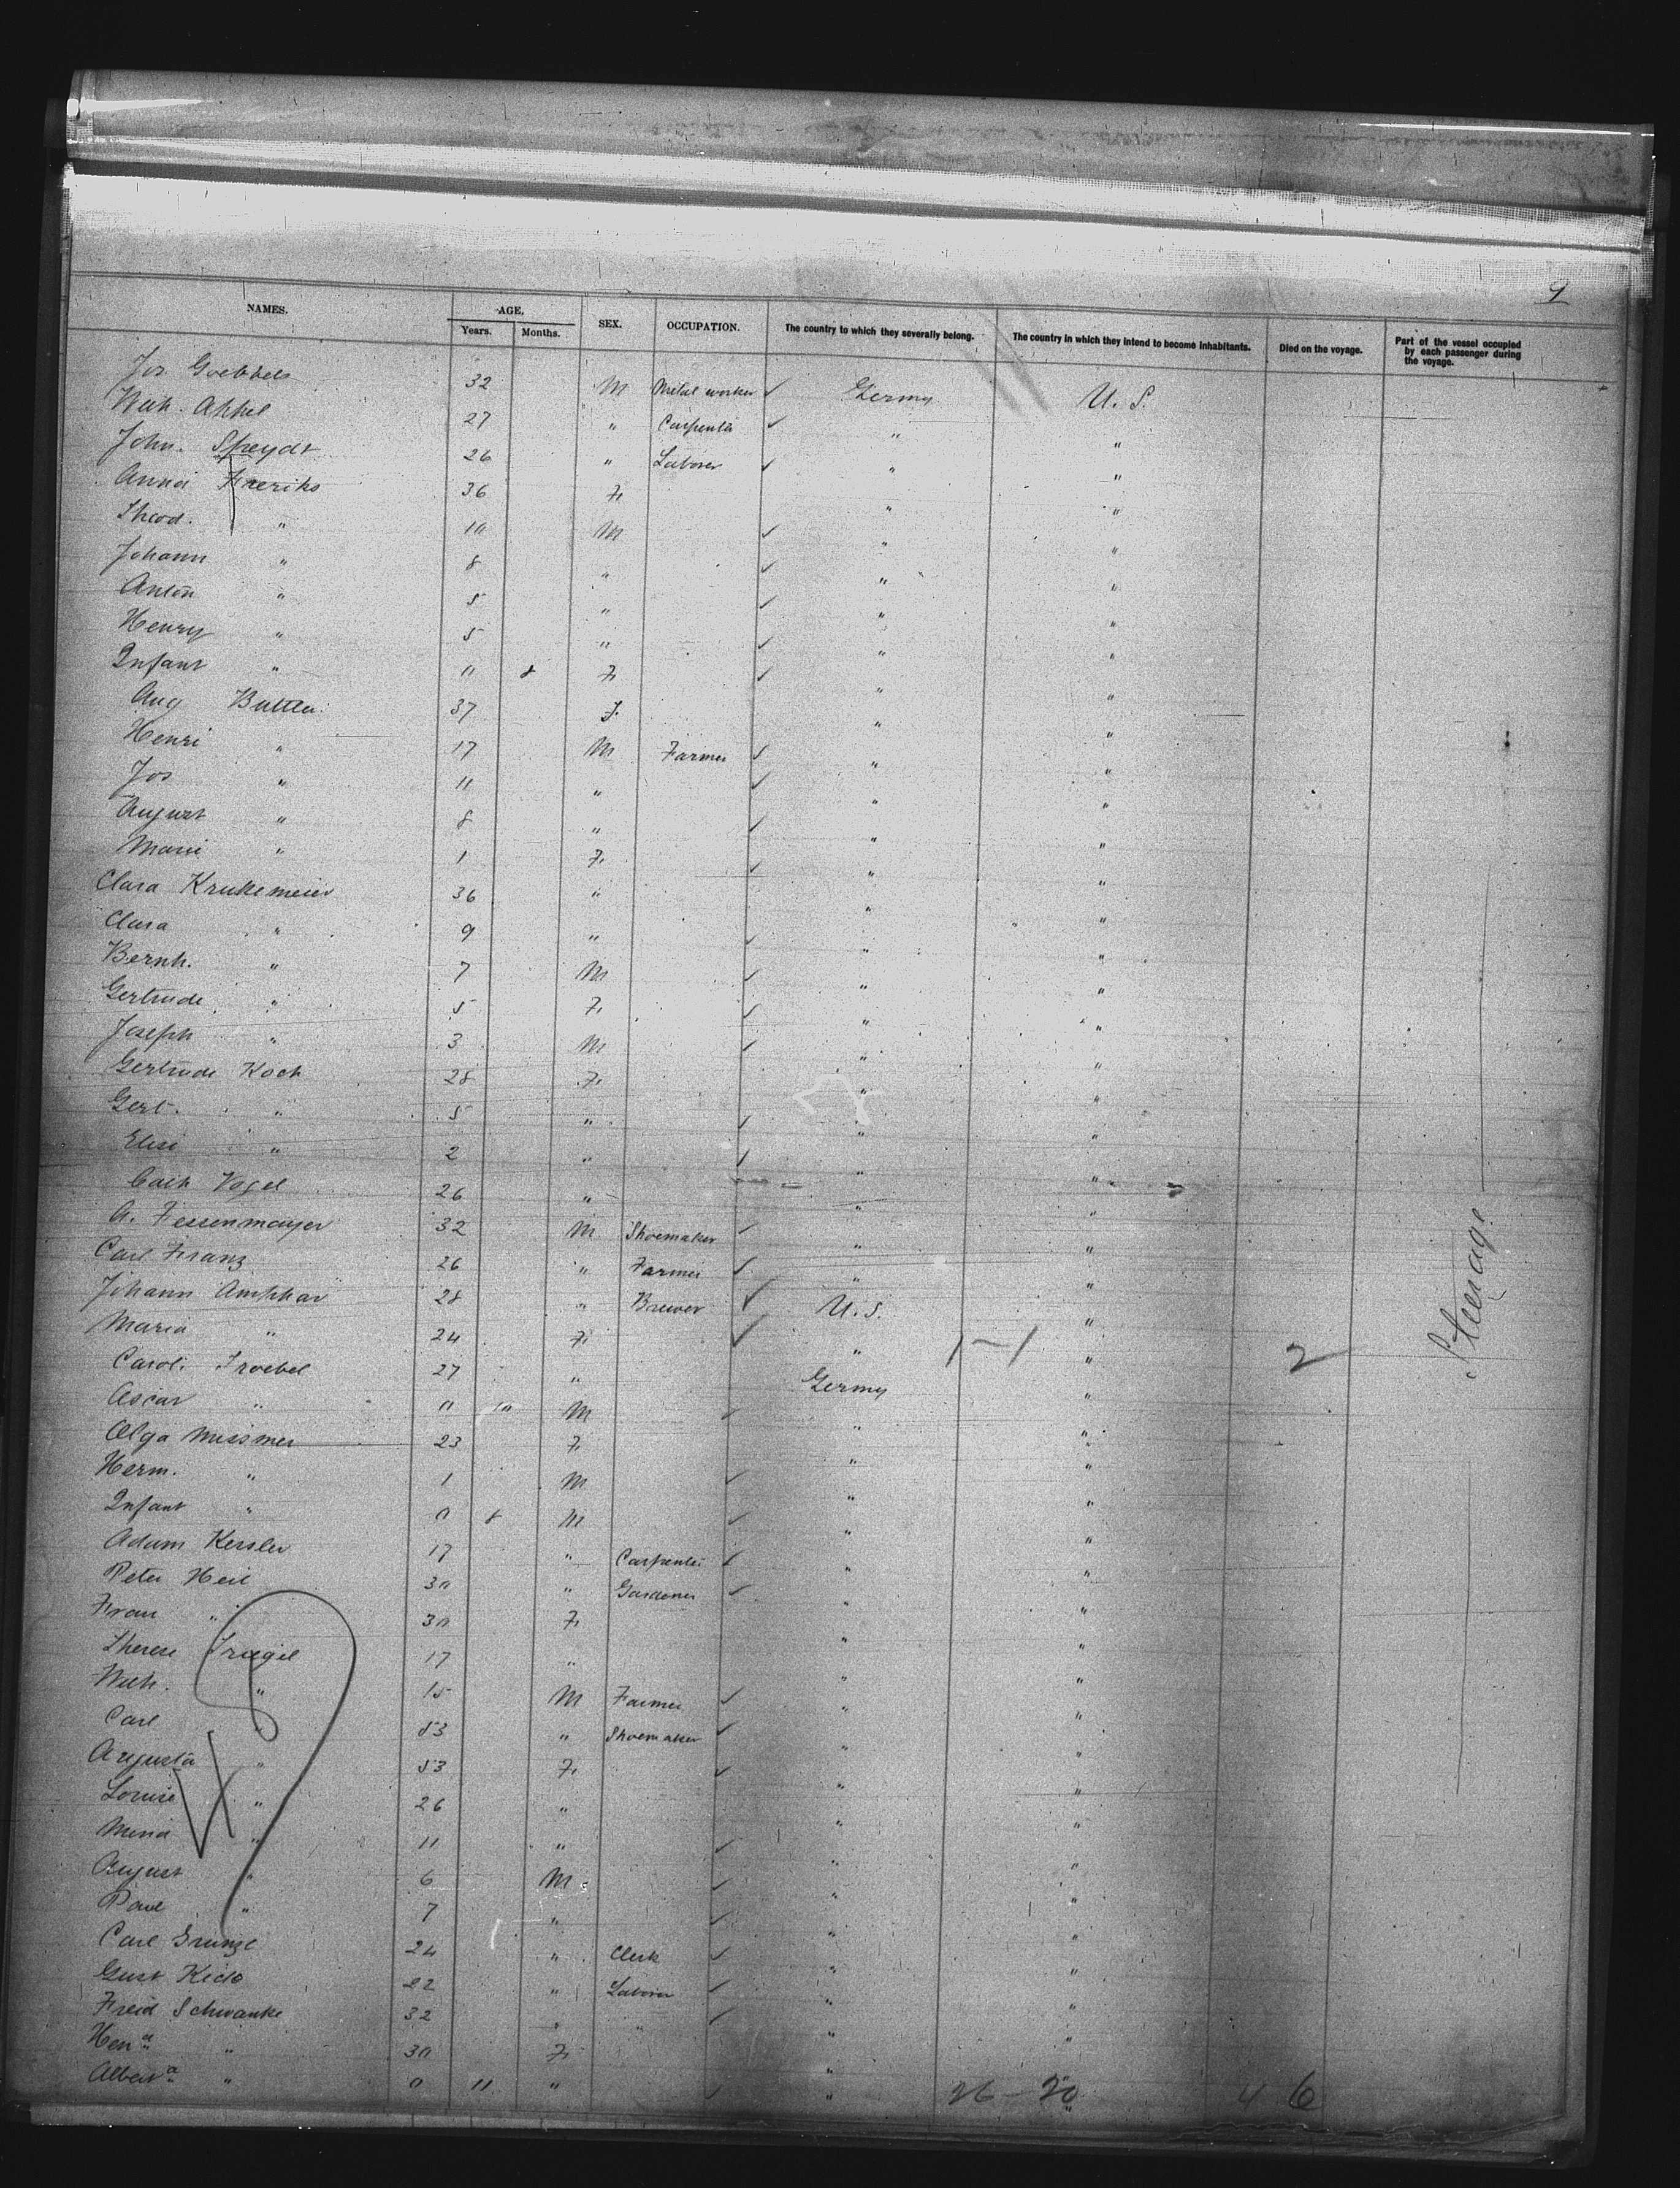 9
NAMES. AGE. SEX. OCCUPATION. The country to which they severally belong. The country in which they intend to become inhabitants. Died on the voyage. Part of the vessel occupied by each passenger during the voyage.
Years. Months.
Jos. Goebbels 32 M Metal worker ✓ Germy U. S.
27 " Carpenter ✓ " "
John. Speydt 26 " Laborer ✓ " "
Anna Freriks 36 F. " "
Theod. " 10 M ✓ " "
Johann " 8 " ✓ " "
Anton " 5 " ✓ " "
Henry " 5 " ✓ " "
Infant " " 8 F. ✓ " "
Aug 37 F. " "
Henri " 17 M Farmer ✓ " "
Jos " 11 " ✓ " "
August " 8 " ✓ " "
Marie " 1 F. ✓ " "
Clara Krukemeier 36 " " "
Clara " 9 " ✓ " "
Bernh. " 7 M ✓ " "
Gertrude " 5 F. ✓ " "
Joseph " 3 M ✓ " "
Gertrude Koch 28 F. " "
Gert. " 5 " ✓ " "
Elise " 2 " ✓ " "
Cath Vogel 26 " " "
A. Fessenmayer 32 M Shoemaker ✓ " "
Carl Franz 26 " Farmer ✓ " "
Johann Amphar 28 " Brewer ✓ U. S. "
Maria " 24 F. ✓ " 1-1 " 2
Caroli. Froebel 27 " Germy "
Oscar " 0 10 M ✓ " "
Olga Missmer 23 F. " "
Herm. " 1 M ✓ " "
Infant " 0 8 M ✓ " "
Adam Kessler 17 " Carpenter ✓ " "
Peter Heil 30 " Gardener ✓ " "
Frau " 30 F. " "
Therese 17 " " "
" 15 M Farmer ✓ " "
Carl " 53 " Shoemaker ✓ " "
Augusta " 53 F. ✓ " "
Louise " 26 " " "
Mina " 11 " ✓ " "
August " 6 M ✓ " "
Paul " 7 " ✓ " "
Carl 24 " Clerk ✓ " "
Gust 22 " Laborer ✓ " "
Fried Schwanke 32 " " ✓ " "
Hena " 30 F. " "
Alberta " 0 11 " ✓ " 26 - 20 " 46
Steerage